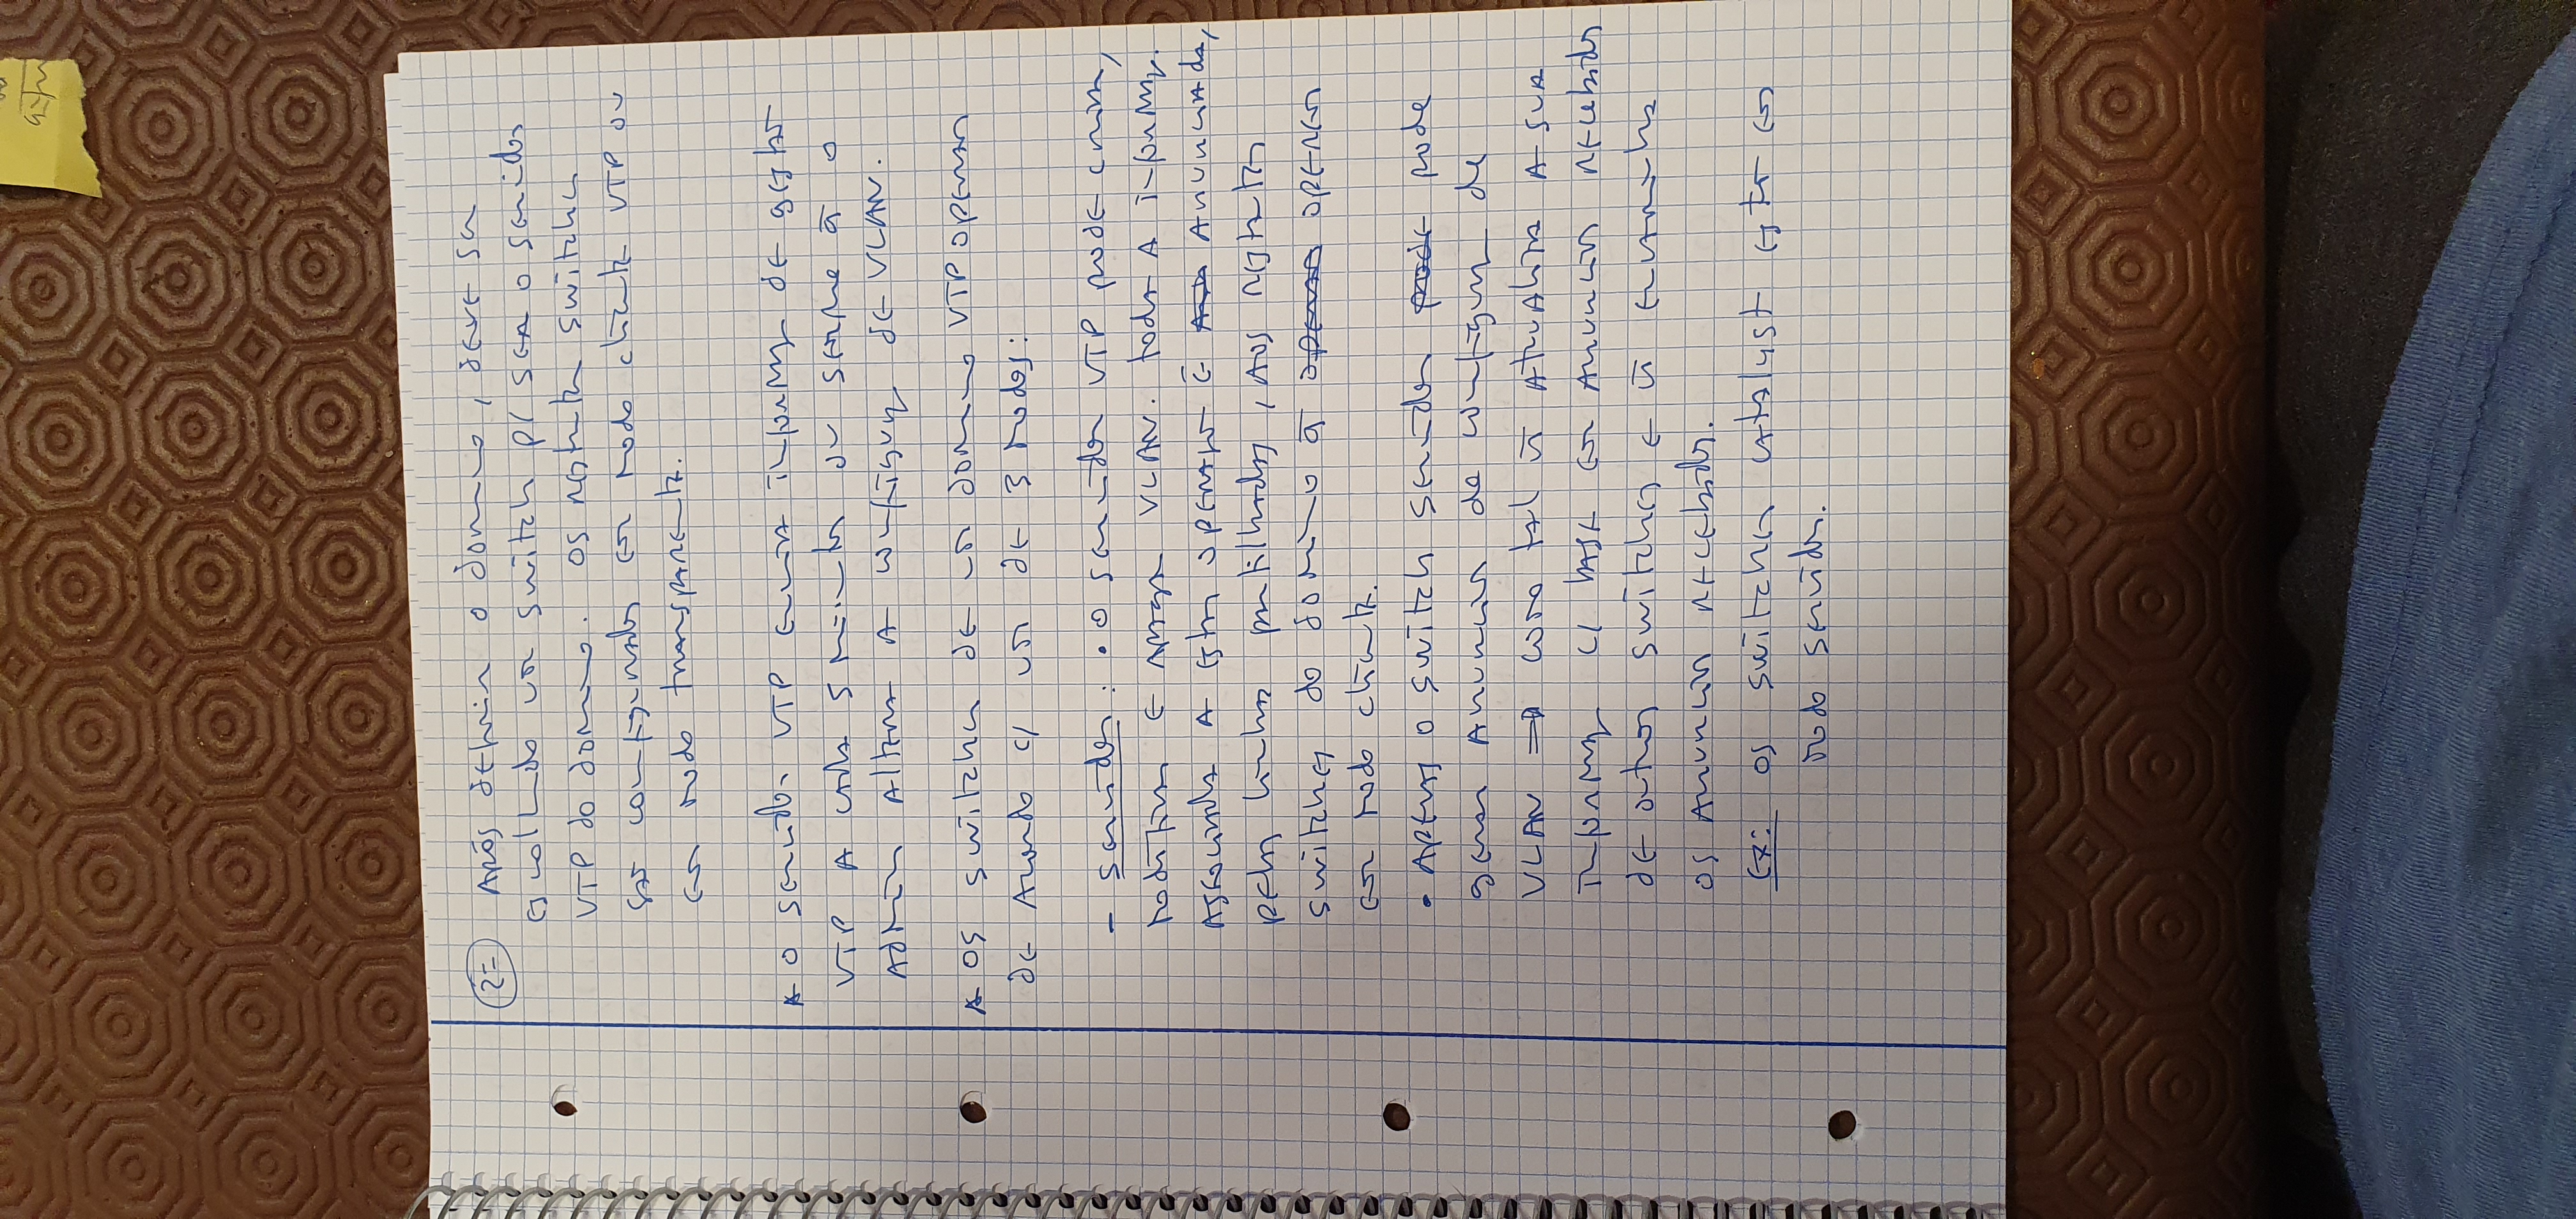 2=
Após definir o domínio, deve ser
escolhido um switch p/ ser o servidor
VTP do domínio. Os restantes switches
são configurados em modo cliente VTP ou
em modo transparente.
O servidor VTP envia informaç de gestão
VTP a cada 5 minutos ou sempre q̄ o
Admin altera a configuraç de VLAN.
Os switches de um domínio VTP operam
de acordo c/ um de 3 modos:
- servidor: • o servidor VTP pode criar,
modificar e apagar VLAN. toda a informaç.
associada a esta operação é anunciada,
pelas linhas partilhadas, aos restantes
switches do domínio q̄ operem
em modo cliente.
• Apenas o switch servidor pode
gerar anúncios de configuraç de
VLAN => como tal ñ atualiza a sua
informaç c/ base em anúncios recebidos
de outros switches e ñ encaminha
os anúncios recebidos.
Ex: os switches catalyst estão em
modo servidor.